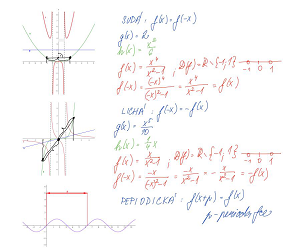 SUDÁ: f(x) = f(-x)
g(x) = 2
f(x) = x⁴/(x²-1) ; D(f) = R∖{-1,1}
-1 0 1
f(-x) = (-x)⁴/((-x)²-1) = x⁴/(x²-1) = f(x)
LICHÁ: f(-x) = -f(x)
g(x) = x³/10
h(x) = 1/4 x
f(x) = x/(x²-1) ; D(f) = R∖{-1,1}
-1 0 1
f(-x) = -x/((-x)²-1) = -x/(x²-1) = - x/(x²-1) = -f(x)
PERIODICKÁ: f(x+p) = f(x)
p - perioda fce